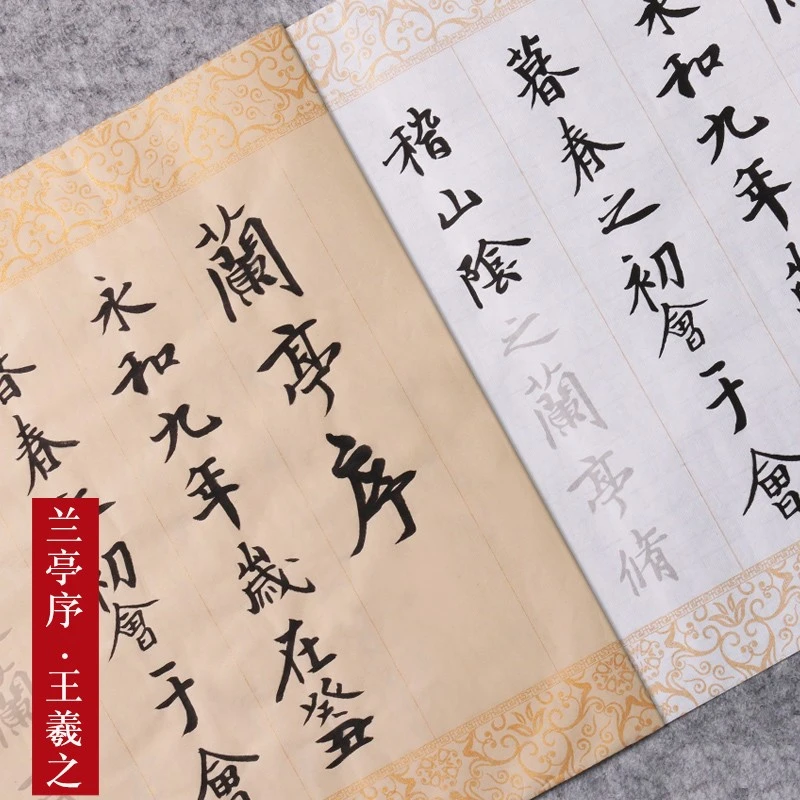 永和九年
暮春之初會于會
稽山陰之蘭亭脩
蘭亭序
永和九年歲在癸丑
暮春之初會于會
蘭
兰亭序·王羲之